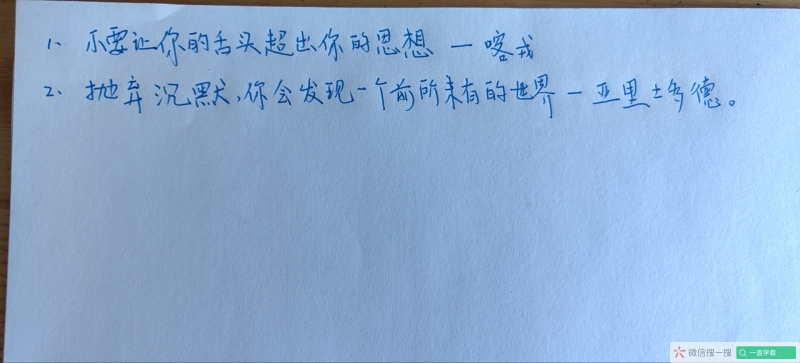 1、不要让你的舌头超出你的思想 — 喀戎
2、抛弃沉默,你会发现一个前所未有的世界 — 亚里士多德。
微信搜一搜
一言学霸